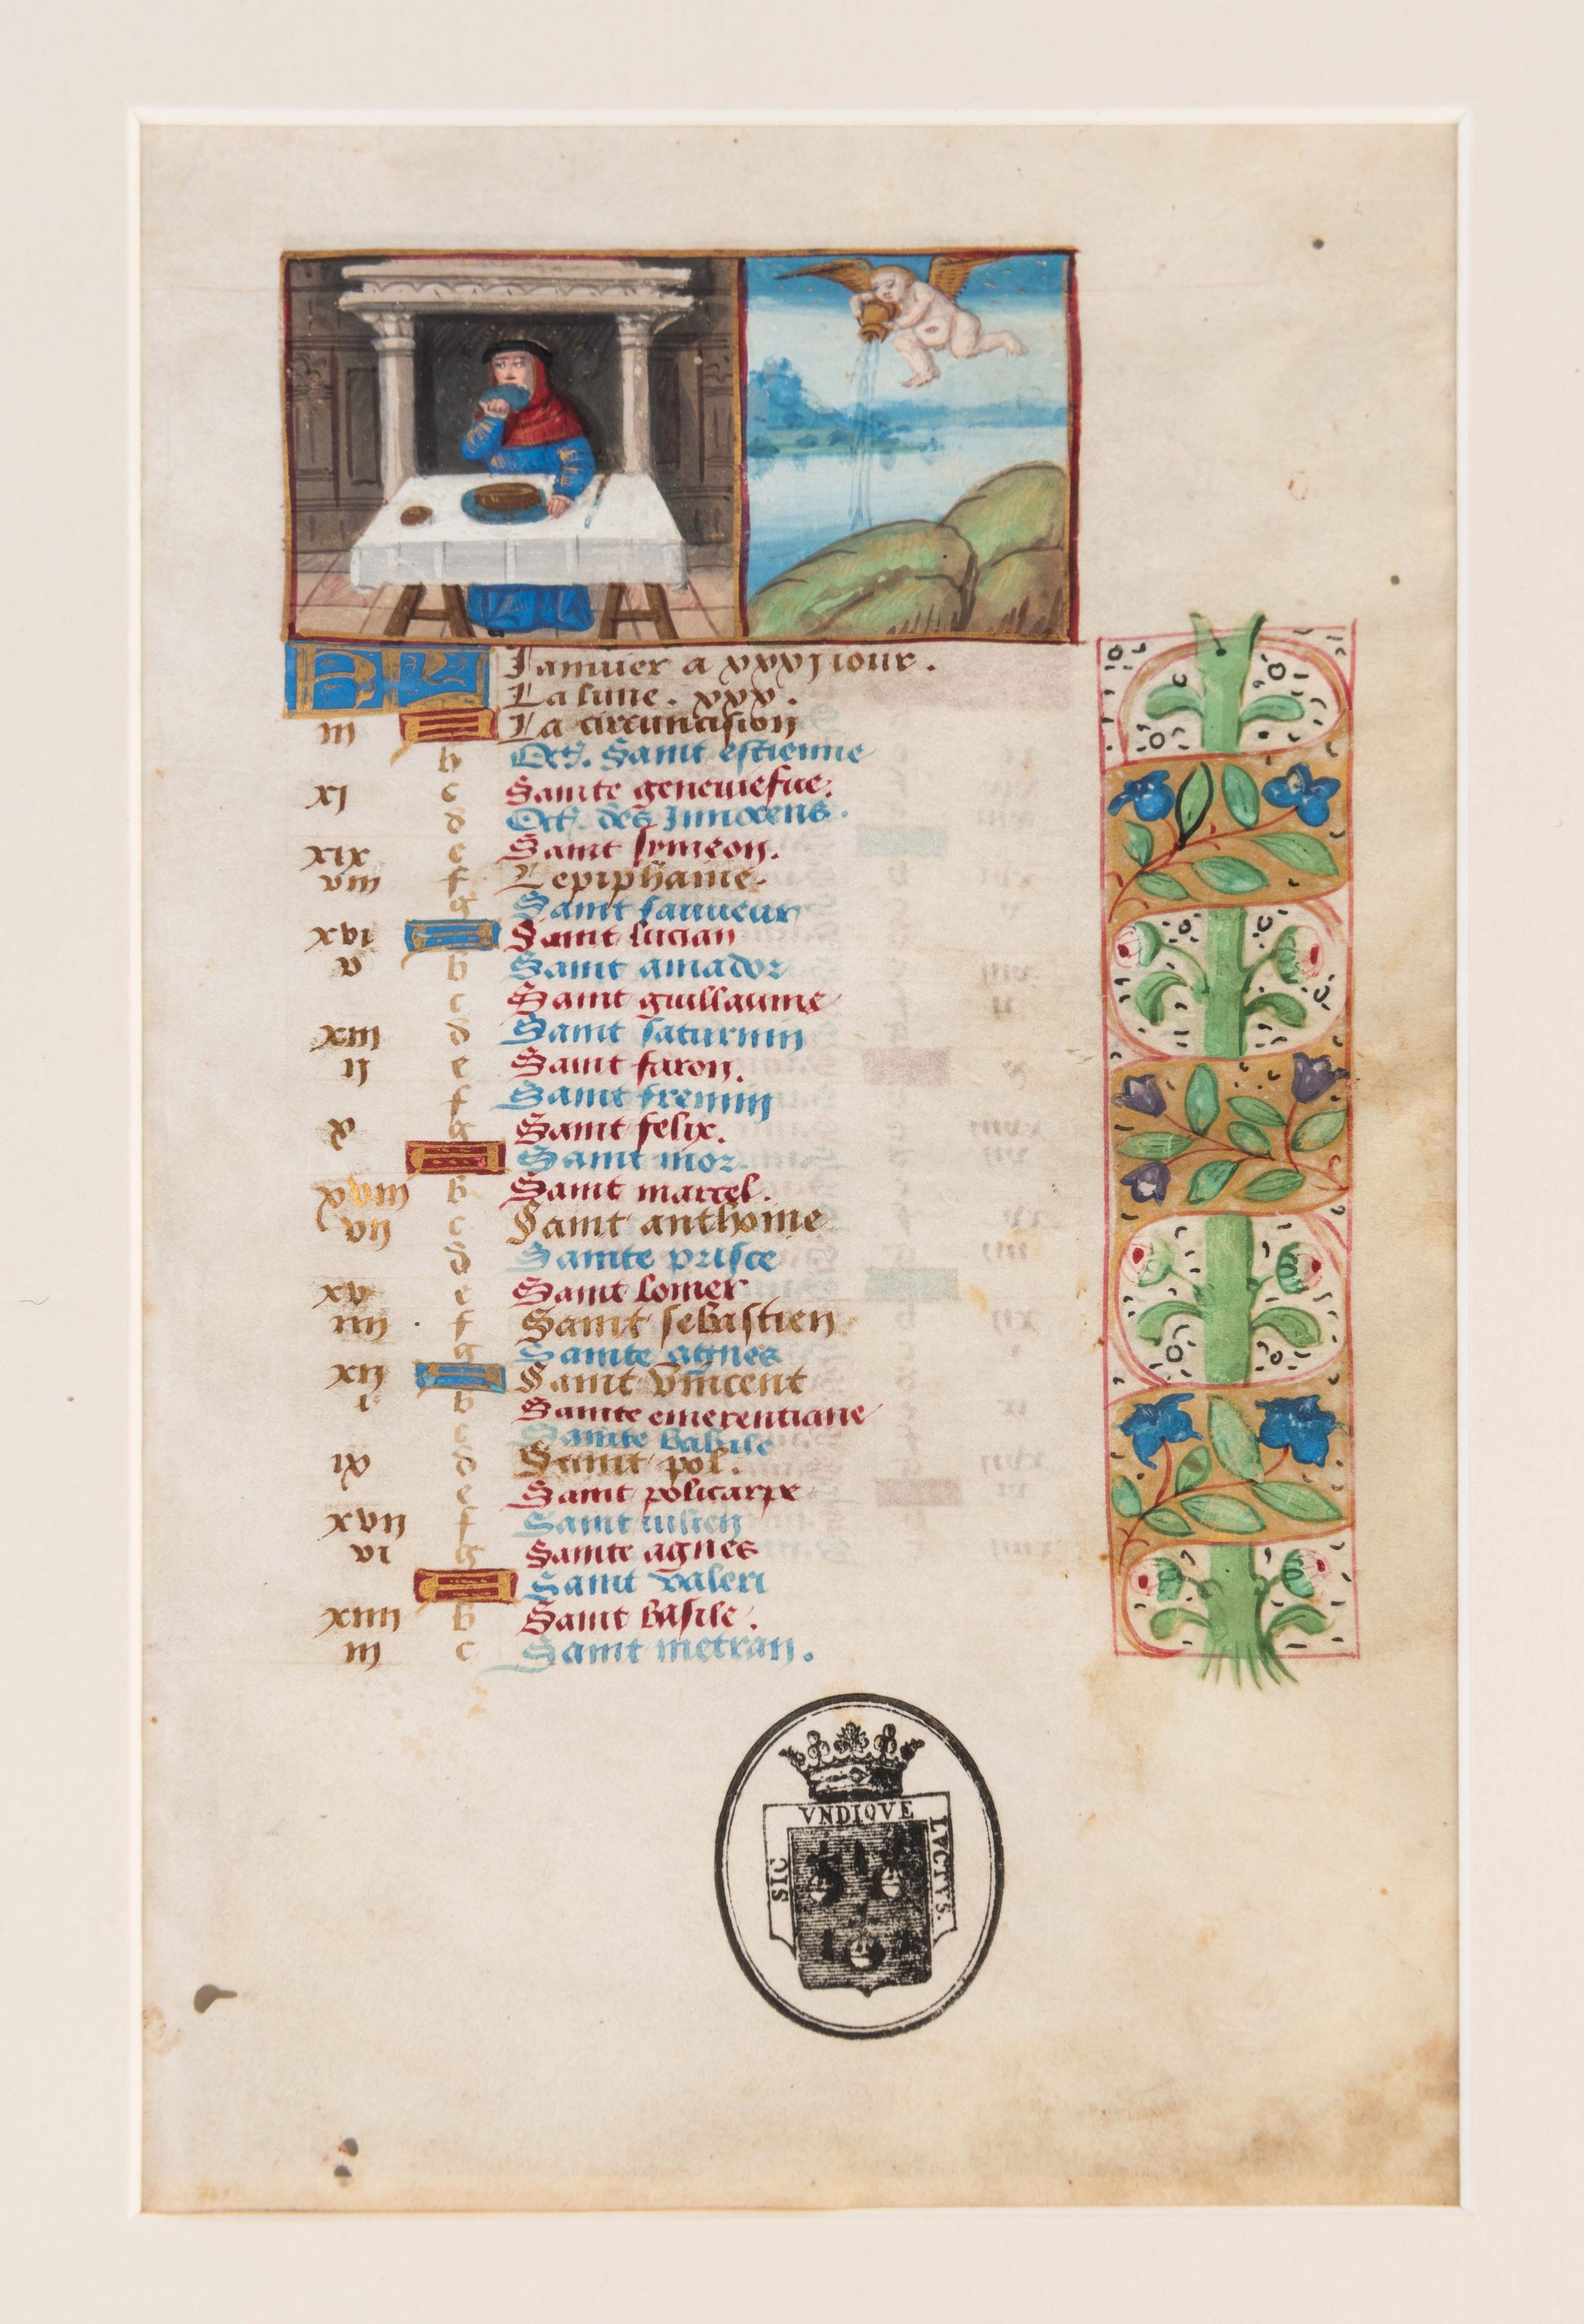 KL Januier a xxxj iour.
La lune. xxx.
iii A La circuncision
b Oct. Saint estienne
xj c Sainte geneuiefue.
d Oct. des Innocens.
xix e Saint symeon.
viii f Lepiphanie.
g Saint sauueur
xvi A Saint lucian
v b Saint amador
c Saint guillaume
xiii d Saint saturnin
ij e Saint faron.
f Saint fremin
x g Saint felix.
A Saint mor.
xviii b Saint marcel.
vij c Saint anthoine
d Sainte prisce
xv e Saint lomer
iiii f Saint sebastien
g Sainte agnes
xij A Saint Vincent
i b Sainte emerentiane
c Sainte babile
ix d Saint pol.
e Saint policarpe
xvij f Saint iulien
vi g Sainte agnes
A Saint valeri
xiiii b Saint basile.
iij c Saint metran.
SIC VNDIQVE LVCTVS.